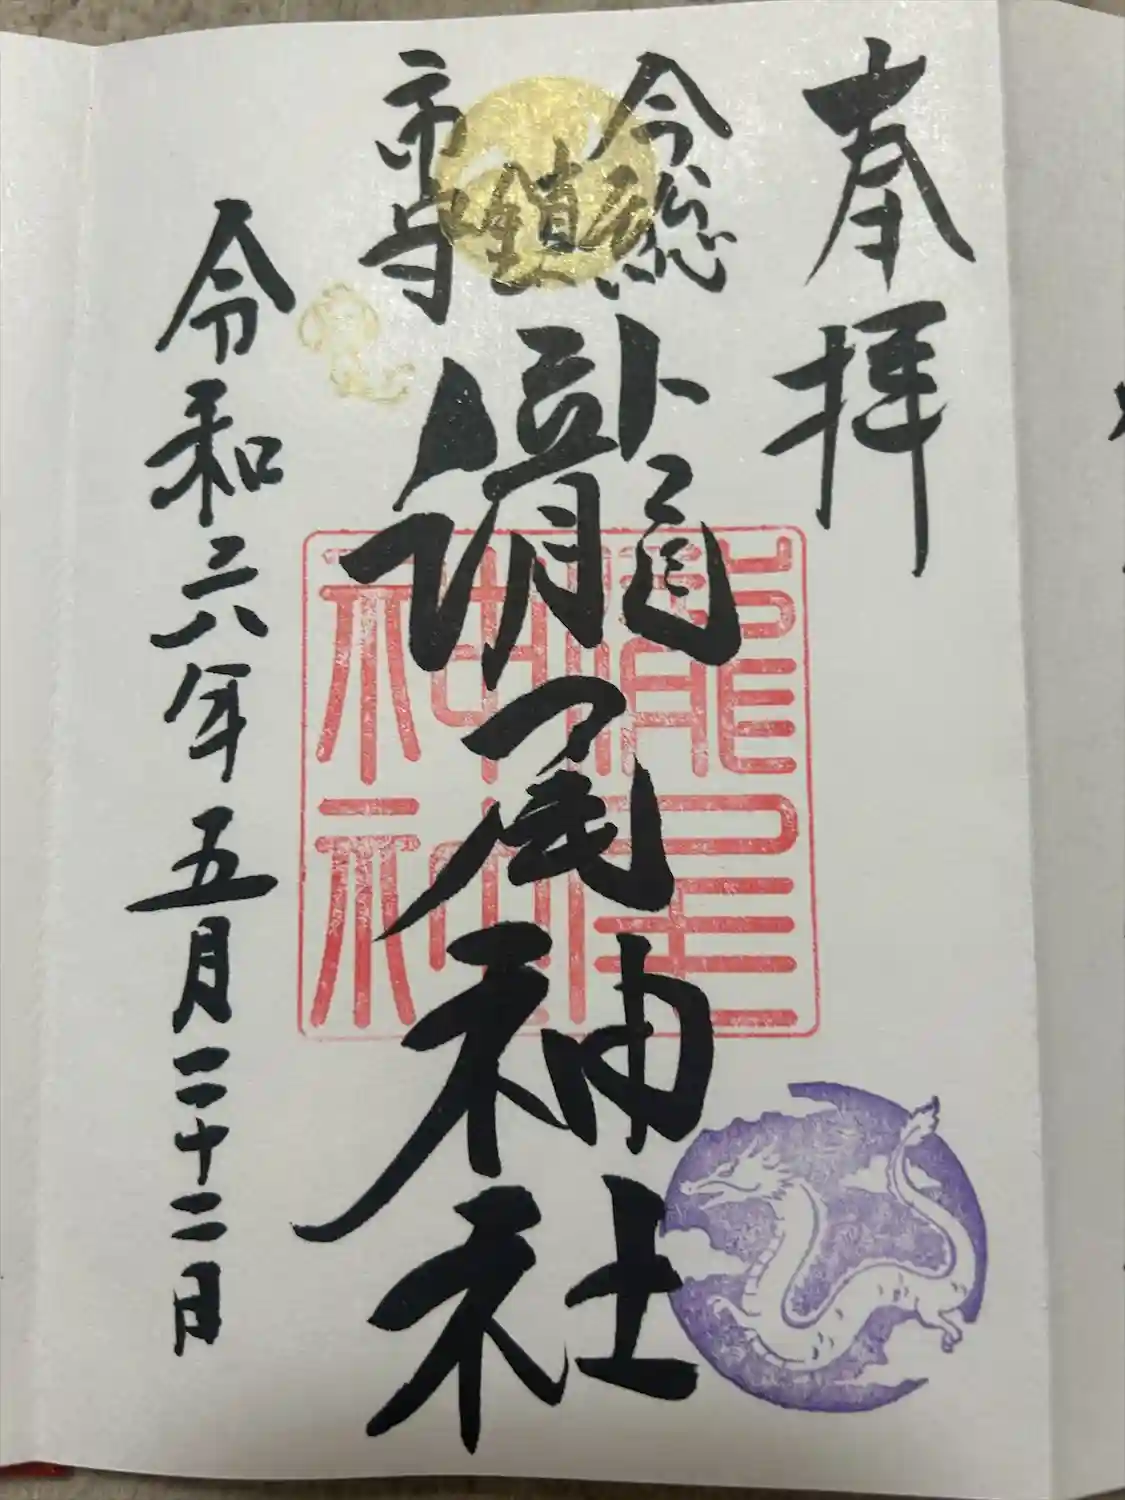 奉拝
今市
総鎮守
瀧尾神社
瀧尾神社
令和六年五月二十二日